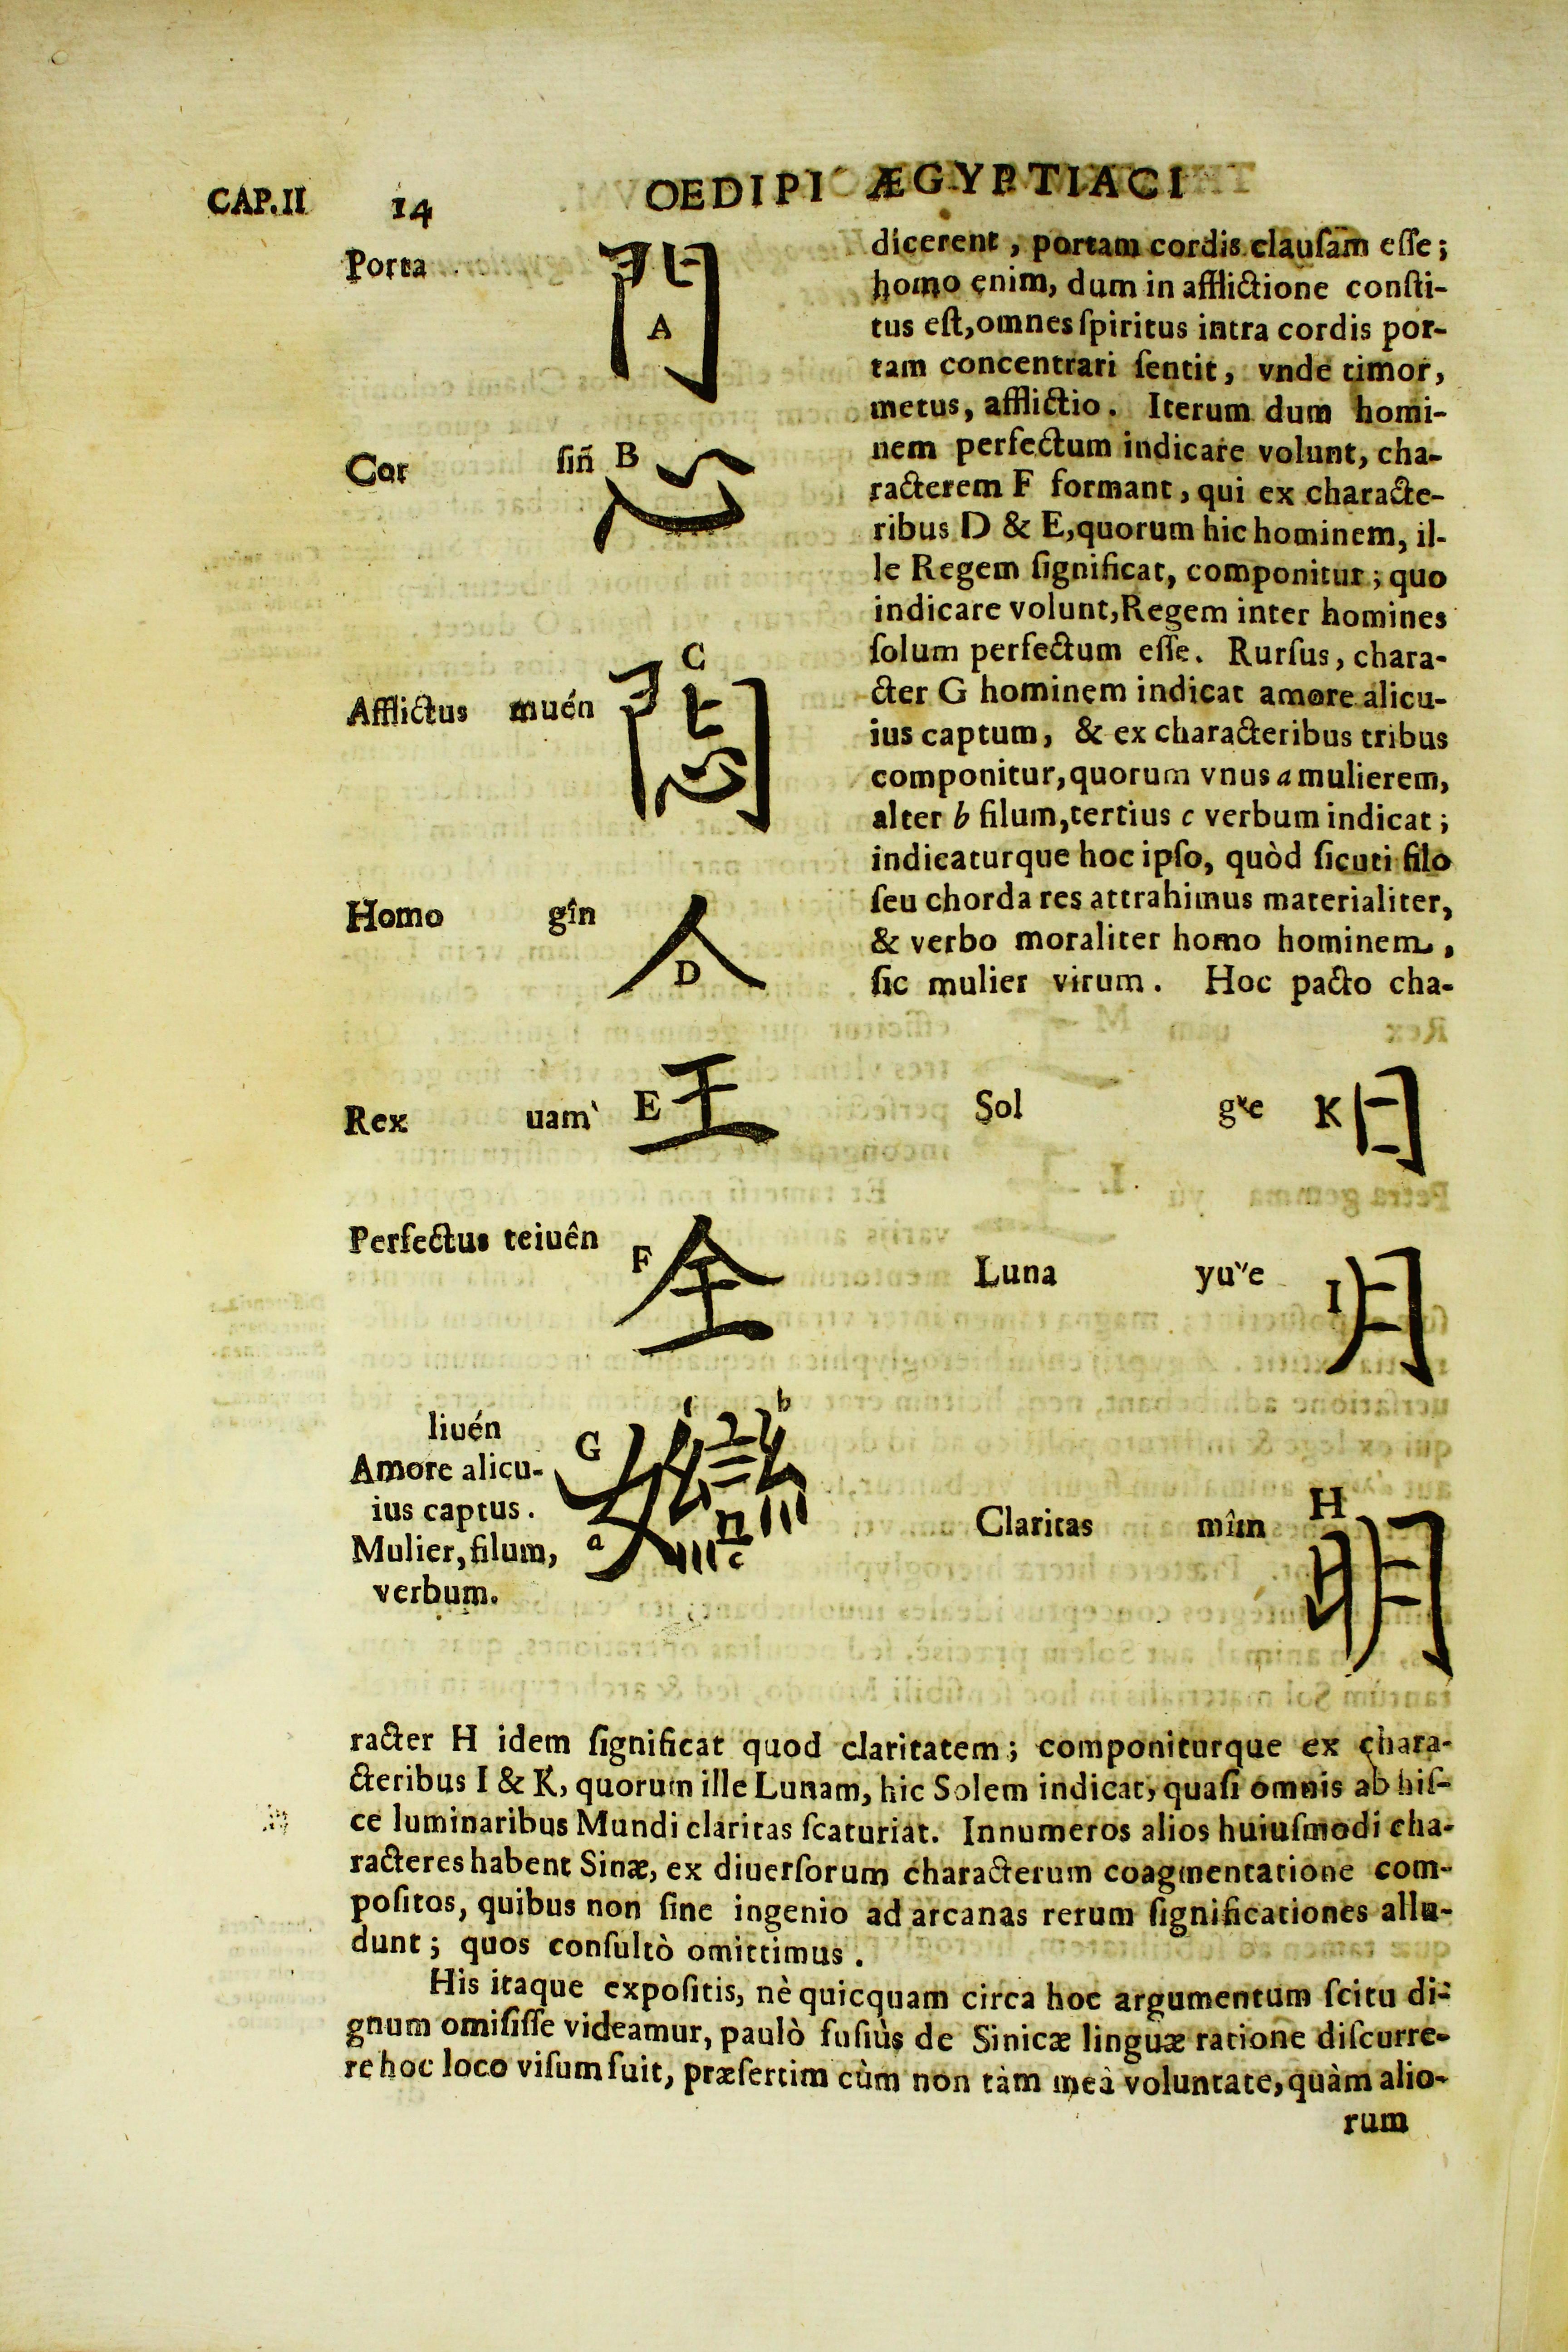 CAP.II 14 OEDIPI ÆGYPTIACI
Porta 門 A
Cor ſiñ B 心
Afflictus muén C 悶
Homo gîn 人 D
Rex uam̀ E 王
Perfectus teiuên F 全
liuén
Amore alicu-
ius captus.
Mulier, filum,
verbum.
G a b c
dicerent, portam cordis clauſam eſſe;
homo enim, dum in afflictione conſti-
tus eſt, omnes ſpiritus intra cordis por-
tam concentrari ſentit, vnde timor,
metus, afflictio. Iterum dum homi-
nem perfectum indicare volunt, cha-
racterem F formant, qui ex characte-
ribus D & E, quorum hic hominem, il-
le Regem ſignificat, componitur; quo
indicare volunt, Regem inter homines
ſolum perfectum eſſe. Rurſus, chara-
cter G hominem indicat amore alicu-
ius captum, & ex characteribus tribus
componitur, quorum vnus a mulierem,
alter b filum, tertius c verbum indicat;
indicaturque hoc ipſo, quòd ſicuti filo
ſeu chorda res attrahimus materialiter,
& verbo moraliter homo hominem,
ſic mulier virum. Hoc pacto cha-
Sol gᵛe K 日
Luna yuˇe I 月
Claritas mîm H 明
racter H idem ſignificat quod claritatem; componiturque ex chara-
cteribus I & K, quorum ille Lunam, hic Solem indicat, quaſi omnis ab hiſ-
ce luminaribus Mundi claritas ſcaturiat. Innumeros alios huiuſmodi cha-
racteres habent Sinæ, ex diuerſorum characterum coagmentatione com-
poſitos, quibus non ſine ingenio ad arcanas rerum ſignificationes allu-
dunt; quos conſultò omittimus.
His itaque expoſitis, nè quicquam circa hoc argumentum ſcitu di-
gnum omiſiſſe videamur, paulò fuſiùs de Sinicæ linguæ ratione diſcurre-
re hoc loco viſum fuit, præſertim cùm non tàm meà voluntate, quàm alio-
rum